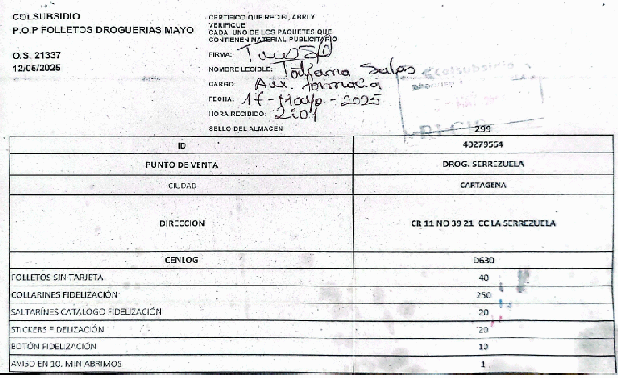 COLSUBSIDIO
P.O.P FOLLETOS DROGUERIAS MAYO
O.S. 21337
12/05/2025
CERTIFICO QUE RECIBI, ABRI Y
VERIFIQUE
CADA UNO DE LOS PAQUETES QUE
CONTIENEN MATERIAL PUBLICITARIO
FIRMA:
NOMBRE LEGIBLE: Tatiana Salas
CARGO: Aux. farmacia
FECHA: 17-Mayo-2025
HORA RECIBIDO:
SELLO DEL ALMACEN
Colsubsidio
299
ID 40279554
PUNTO DE VENTA DROG. SERREZUELA
CIUDAD CARTAGENA
DIRECCION CR 11 NO 39 21 CC LA SERREZUELA
CENLOG D630
FOLLETOS SIN TARJETA 40
COLLARINES FIDELIZACIÓN 250
SALTARÍNES CATALOGO FIDELIZACIÓN 20
STICKERS FIDELIZACIÓN 20
BOTÓN FIDELIZACIÓN 10
AVISO EN 10. MIN ABRIMOS 1